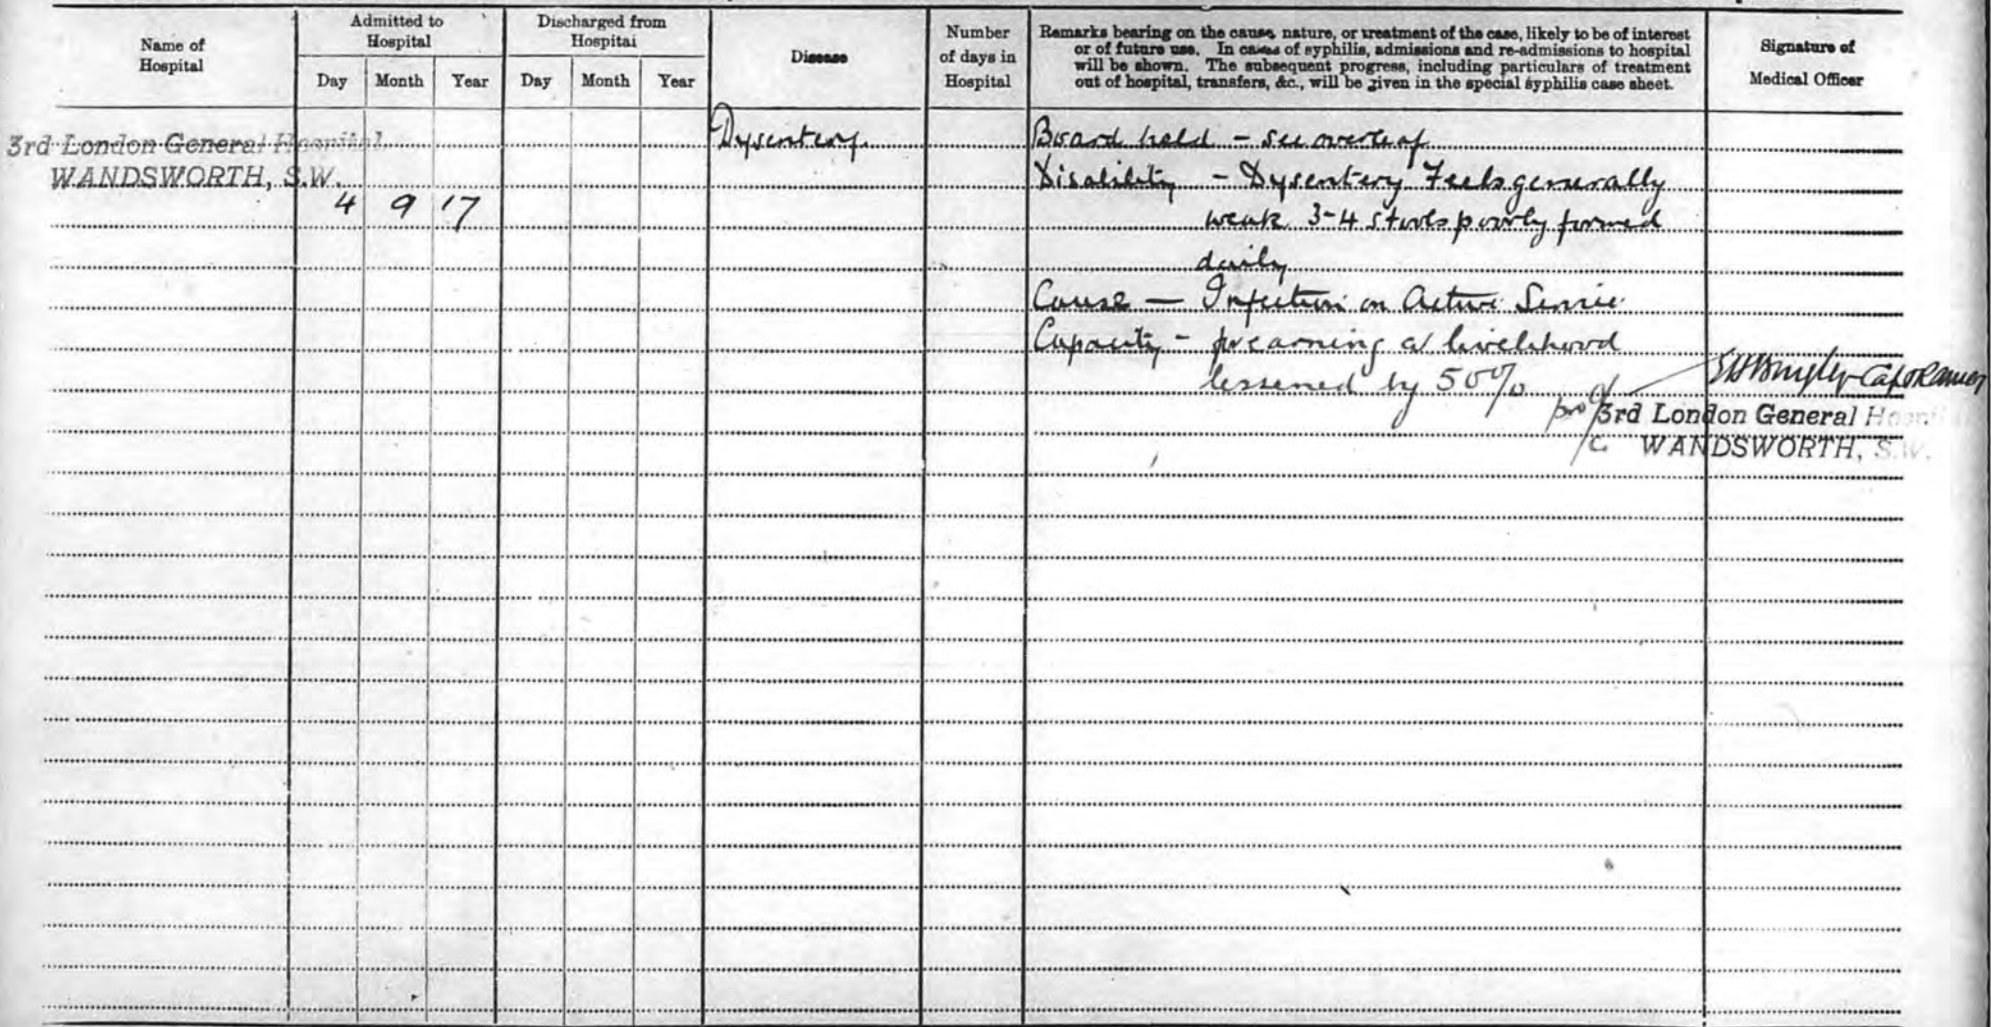 Name of
Hospital
Admitted to
Hospital
Day Month Year
Discharged from
Hospital
Day Month Year
Disease
Number
of days in
Hospital
Remarks bearing on the cause, nature, or treatment of the case, likely to be of interest
or of future use. In cases of syphilis, admissions and re-admissions to hospital
will be shown. The subsequent progress, including particulars of treatment
out of hospital, transfers, &c., will be given in the special syphilis case sheet.
Signature of
Medical Officer
3rd London General Hospital
WANDSWORTH, S.W.
4 9 17
Dysentery
Board held - see overleaf
Disability - Dysentery Feels generally
weak 3-4 stools poorly formed
daily
Cause — Infection on Active Service
Capacity - for earning a livelihood
lessened by 50%
Capt RAMC
3rd London General Hospital
WANDSWORTH, S.W.